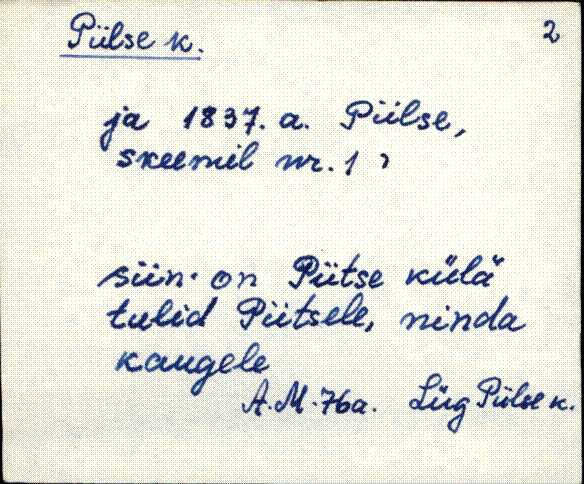 Püilse k. 2
ja 1837. a. Püilse,
skeemil nr. 1 ?
siin on Püitse külä
tulid Püitsele, ninda
kaugele
A.M. 76a. Lüg Püilse k.